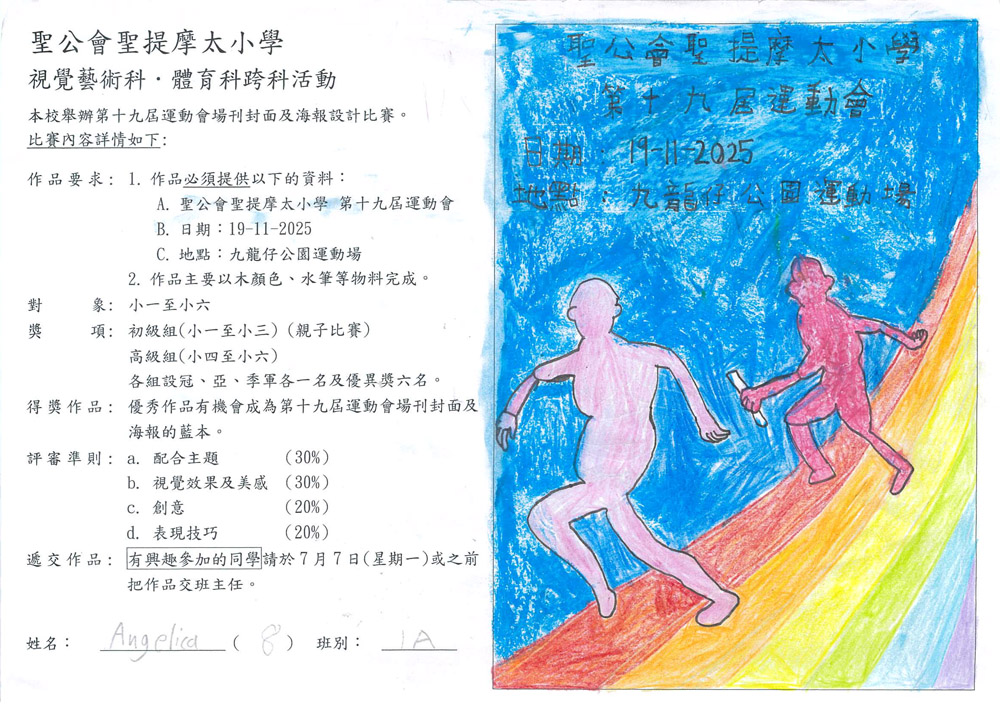 聖公會聖提摩太小學
視覺藝術科·體育科跨科活動
本校舉辦第十九屆運動會場刊封面及海報設計比賽。
比賽內容詳情如下:
作品要求: 1. 作品必須提供以下的資料：
A. 聖公會聖提摩太小學 第十九屆運動會
B. 日期：19-11-2025
C. 地點：九龍仔公園運動場
2. 作品主要以木顏色、水筆等物料完成。
對 象: 小一至小六
獎 項: 初級組(小一至小三) (親子比賽)
高級組(小四至小六)
各組設冠、亞、季軍各一名及優異獎六名。
得獎作品: 優秀作品有機會成為第十九屆運動會場刊封面及
海報的藍本。
評審準則: a. 配合主題 (30%)
b. 視覺效果及美感 (30%)
c. 創意 (20%)
d. 表現技巧 (20%)
遞交作品: 有興趣參加的同學請於7月7日(星期一)或之前
把作品交班主任。
姓名： Angelica ( 8 ) 班別： 1A
聖公會聖提摩太小學
第十九屆運動會
日期：19-11-2025
地點：九龍仔公園運動場